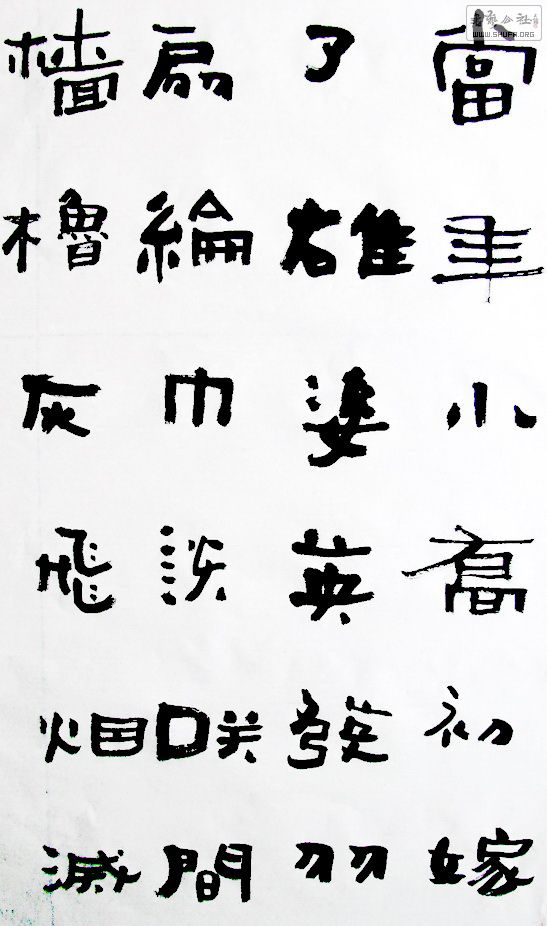 當年小喬初嫁
了雄姿英發羽
扇綸巾談咲間
檣櫓灰飛烟滅
书艺公社
WWW.SHUFA.ORG